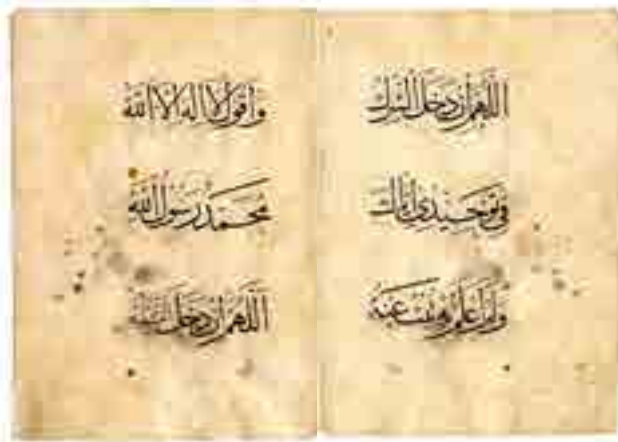 اللهم ان دخل الشرك
في توحيدي اياك
ولم اعلم به تبت عنه
واقول لا اله الا الله
محمد رسول الله
اللهم ان دخل